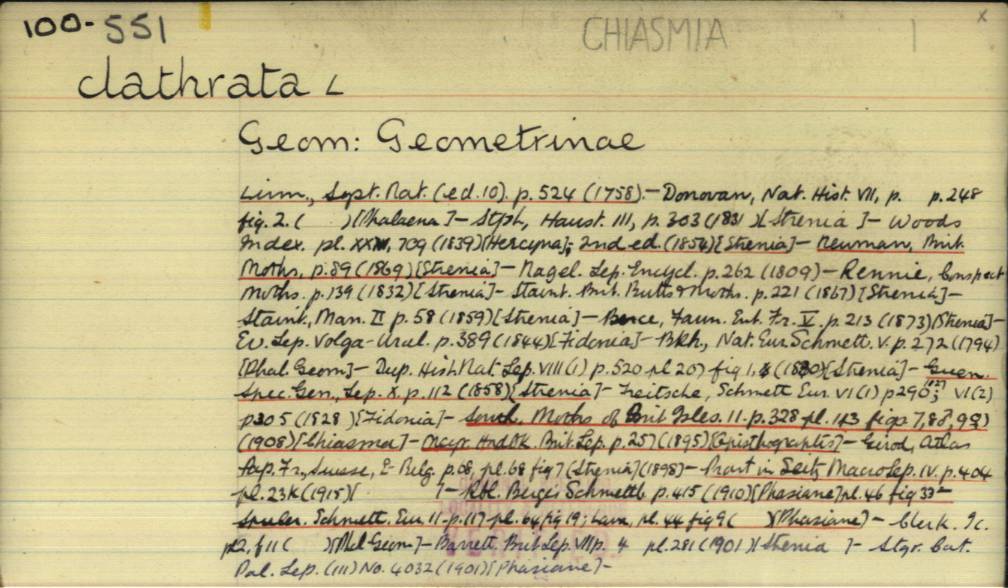 100-551 CHIASMIA 1 x
clathrata L
Geom: Geometrinae
Linn., Syst. Nat. (ed. 10). p. 524 (1758) - Donovan, Nat. Hist. VII, p. p. 248
fig. 2. ( )[Phalaena] - Stph, Haust. III, p. 303 (1831)[Strenia] - Woods
Index. pl. 709 (1839)[Hercyna]; 2nd ed. (1854)[Strenia] - Newman, Brit.
Moths, p. 89 (1869)[Strenia] - Nagel. Lep. Encycl. p. 262 (1809) - Rennie, Conspect
Moths. p. 139 (1832)[Strenia] - Staint. Brit. Butts & Moths. p. 221 (1867)[Strenia] -
Staint., Man. II p. 58 (1859)[Strenia] - Berce, Faun. Ent. Fr. V. p. 213 (1873)[Strenia] -
Ev. Lep. Volga-Ural. p. 389 (1844)[Fidonia] - Bkh., Nat. Eur. Schmett. V. p. 272 (1794)
[Phal. Geom] - Dup. Hist. Nat Lep. VIII (1) p. 520 pl 207 fig 1, (1830)[Strenia] - Guen.
Spec. Gen., Lep. X, p. 112 (1858)[Strenia] - Treitsche, Schmett Eur. VI (1) p 290; VI (2)
p 305 (1828)[Fidonia] - South, Moths of Brit Isles. II. p. 328 pl. 143 figs 7, 8♂, 9♀)
(1908)[Chiasma] - Meyr. HndBk. Brit. Lep. p. 257 (1895)[Episthographtes] - Girod, Atlas
Pap. Fr., Suisse, & Belg. p 68, pl. 68 fig 7 (Strenia](1898) - Prout in Seitz, Macro Lep. IV. p. 404
pl. 23k (1915)[ ] - Rbl. Berge's Schmettb. p. 415 (1910)[Phasiane] pl. 46 fig 33 -
Spuler. Schmett. Eur II - p. 117 pl. 64 fig 19; Larv, pl. 44 fig 9 ( )[Phasiane] - Clerk. Ic.
pl 2, f 11 ( )[Phal Geom] - Barrett, Brit Lep. VII p. 4 pl. 281 (1901)[Strenia ] - Stgr. Cat.
Pal. Lep. (III) No. 4032 (1901)[Phasiane] -